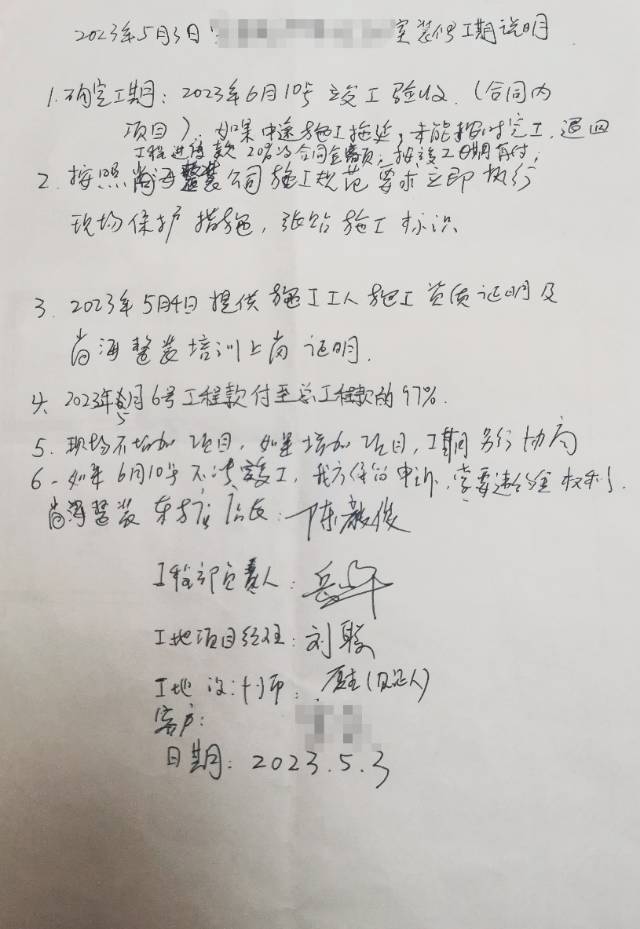 2023年5月3日 室装修工期说明
1. 确定工期：2023年6月10号竣工验收.（合同内
项目），如果中途施工拖延，未能按时完工，退回
工程进度款20%为合同金额，按竣工日期再付；
2. 按照尚海整装公司施工规范要求立即执行
现场保护措施，张贴施工标识
3. 2023年5月4日提供施工工人施工资质证明及
尚海整装培训上岗证明.
4. 2023年5月6号工程款付至总工程款的97%.
5. 现场不增加项目，如果增加项目，工期另行协商
6. 如果6月10号不能竣工，我方保留申诉，索要违约金权利.
尚海整装东方店店长：陈毅俊
工程部负责人：岳
工地项目经理：刘
工地设计师：（见证人）
客户：
日期：2023.5.3